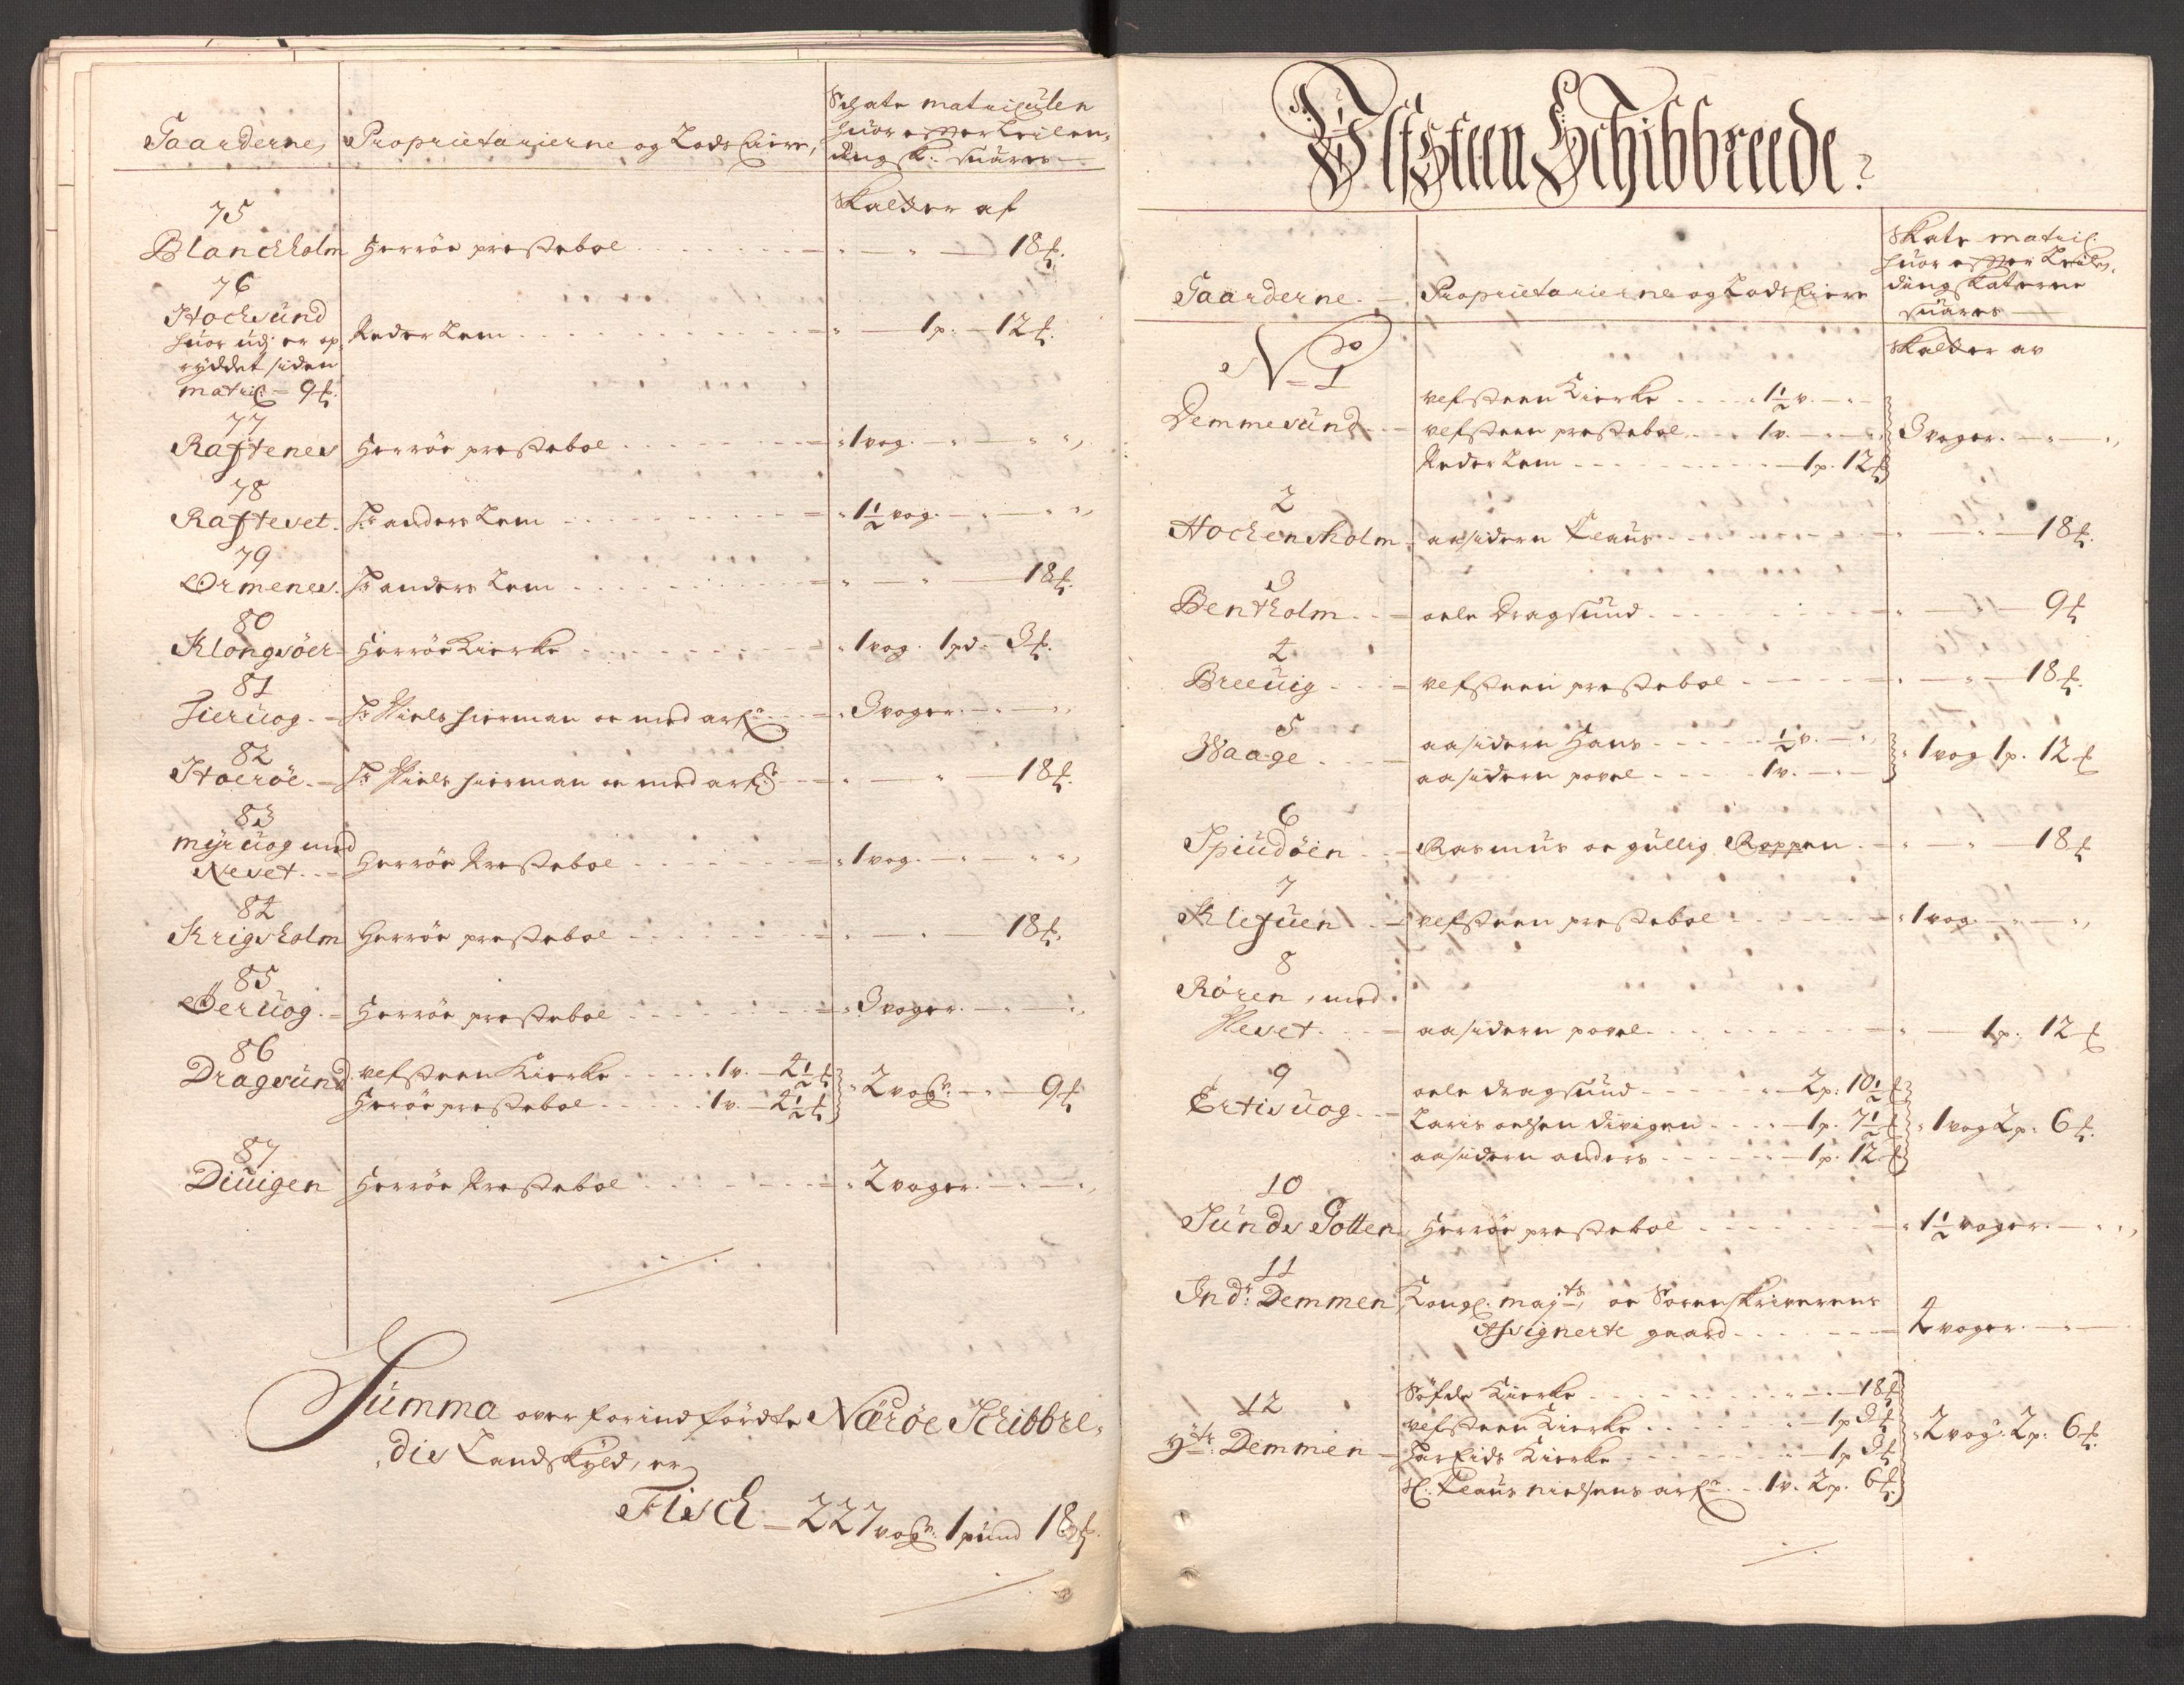 Gaarderne, Proprietarierne og Lods Eiere,
Schate matriculen
huor effter Leilen,
dings k: suares
Skalder af
75
Blanckholm Herröe prestebol 18 ℔.
76
Hochsund
huor udj er op
ryddet siden
matric: 9 ℔.
Reder Lem 1 p: 12 ℔.
77
Raftenes Herröe prestebol 1 vog.
78
Raftevet. Hr anders Lem 1 1/2 vog.
79
Ormenes. Hr anders Lem 18 ℔.
80
Klongsöer Herröe Kierke 1 vog. 1 pd. 3 ℔.
81
Hieruog. Hr Niels hierman oe med arf: 3 voger.
82
Hoeröe. Hr Niels hierman oe med arf: 18 ℔.
83
myruog med
Nevet. Herröe Prestebol 1 vog.
84
Krigsholm Herröe prestebol 18 ℔.
85
Beruog. Herröe prestebol 3 voger.
86
Dragsund vefsteen Kierke 1 v. 4 1/2 ℔
Heröe prestebol 1 v. 4 1/2 ℔
2 vogr. 9 ℔
87
Diuigen Herröe Prestebol 2 voger.
Summa over forindfördte Næröe Schibbre,
dis Landskyld, er
Fisch 227 vogr. 1 pund 18 ℔.
Ulfsteen Schibbreede.
Gaarderne. Proprietarierne og Lods Eiere
Skate matric.
huor effter Leilen,
dings katerne
suares
Skalder av
No 1
Demmesund
vefsteen Kierke 1 1/2 v.
vefsteen prestebol 1 v.
Reder Lem 1 p. 12 ℔
3 voger.
2
Hochensholm aasidern Claus 18 ℔.
3
Bentholm oele Dragsund 9 ℔
4
Breeuig vefsteen prestebol 18 ℔.
5
Waage
aasidern Hans 1/2 v.
aasidern povel 1 v.
1 vog 1 p. 12 ℔
6
Spiudöen Rasmus oe gullig Roppen 18 ℔
7
Klefuen vefsteen prestebol 1 vog.
8
Rören, med
Nevet. aasidern povel 1 p: 12 ℔
9
Ertisuog
oele dragsund 2 p: 10 1/2 ℔
Laris oelsen divigen 1 p. 7 1/2 ℔
aasidern anders 1 p. 12 ℔
1 vog 2 p. 6 ℔.
10
Sunds Gotten Herröe prestebol 1 1/2 voger.
11
Indr Demmen Kongl. majts, oe Sorenskriverens
Assignerte gaard 4 voger.
12
ytr: Demmen
Söfde Kierke 18 ℔
vefsteen Kierke 1 p 3 ℔
Har Eids Kierke 1 p 3 ℔
Sl. Claus nielsens arf: 1 v. 2 p. 6 ℔.
2 vog: 2 p: 6 ℔.